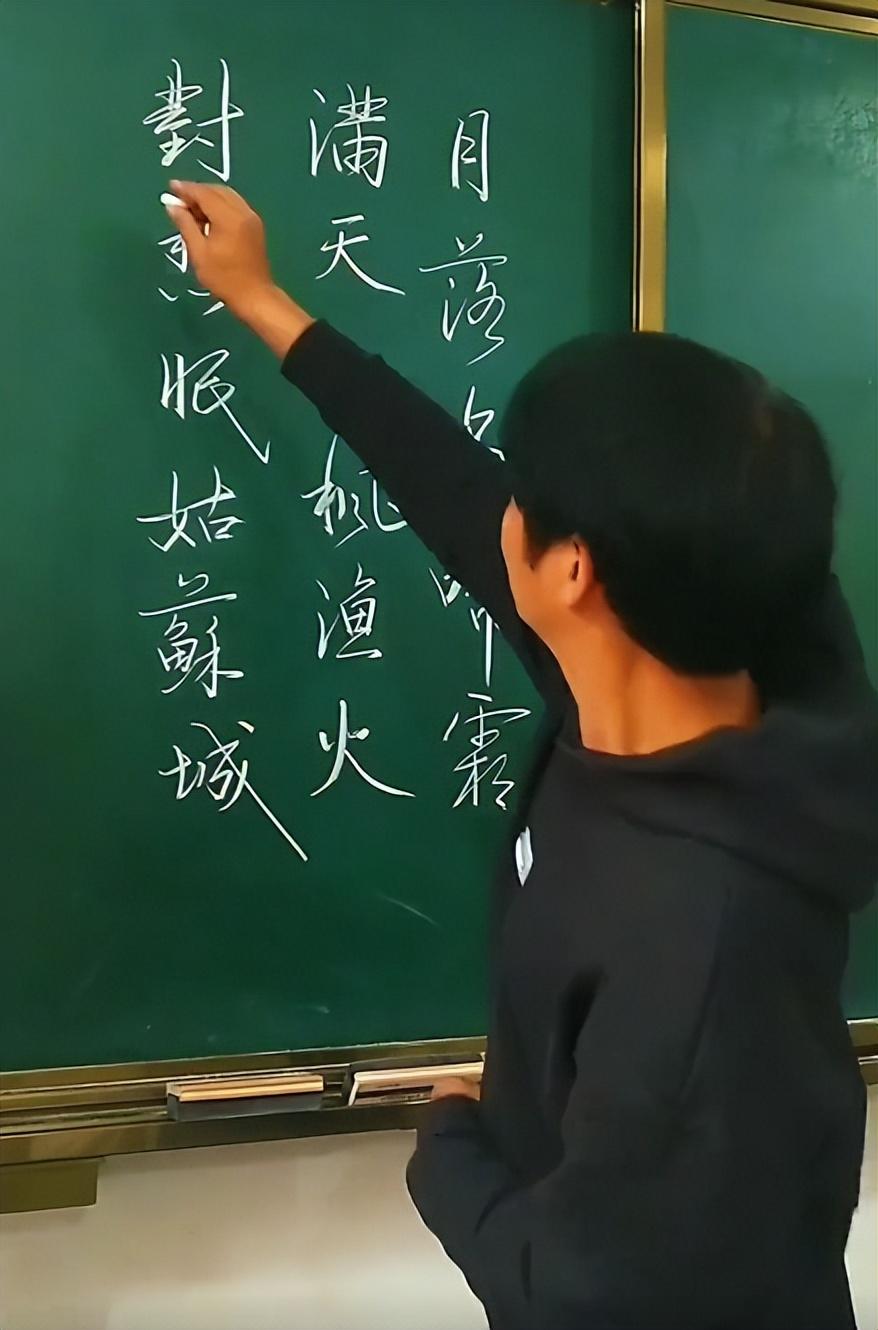 月落霜
滿天漁火
對眠姑蘇城